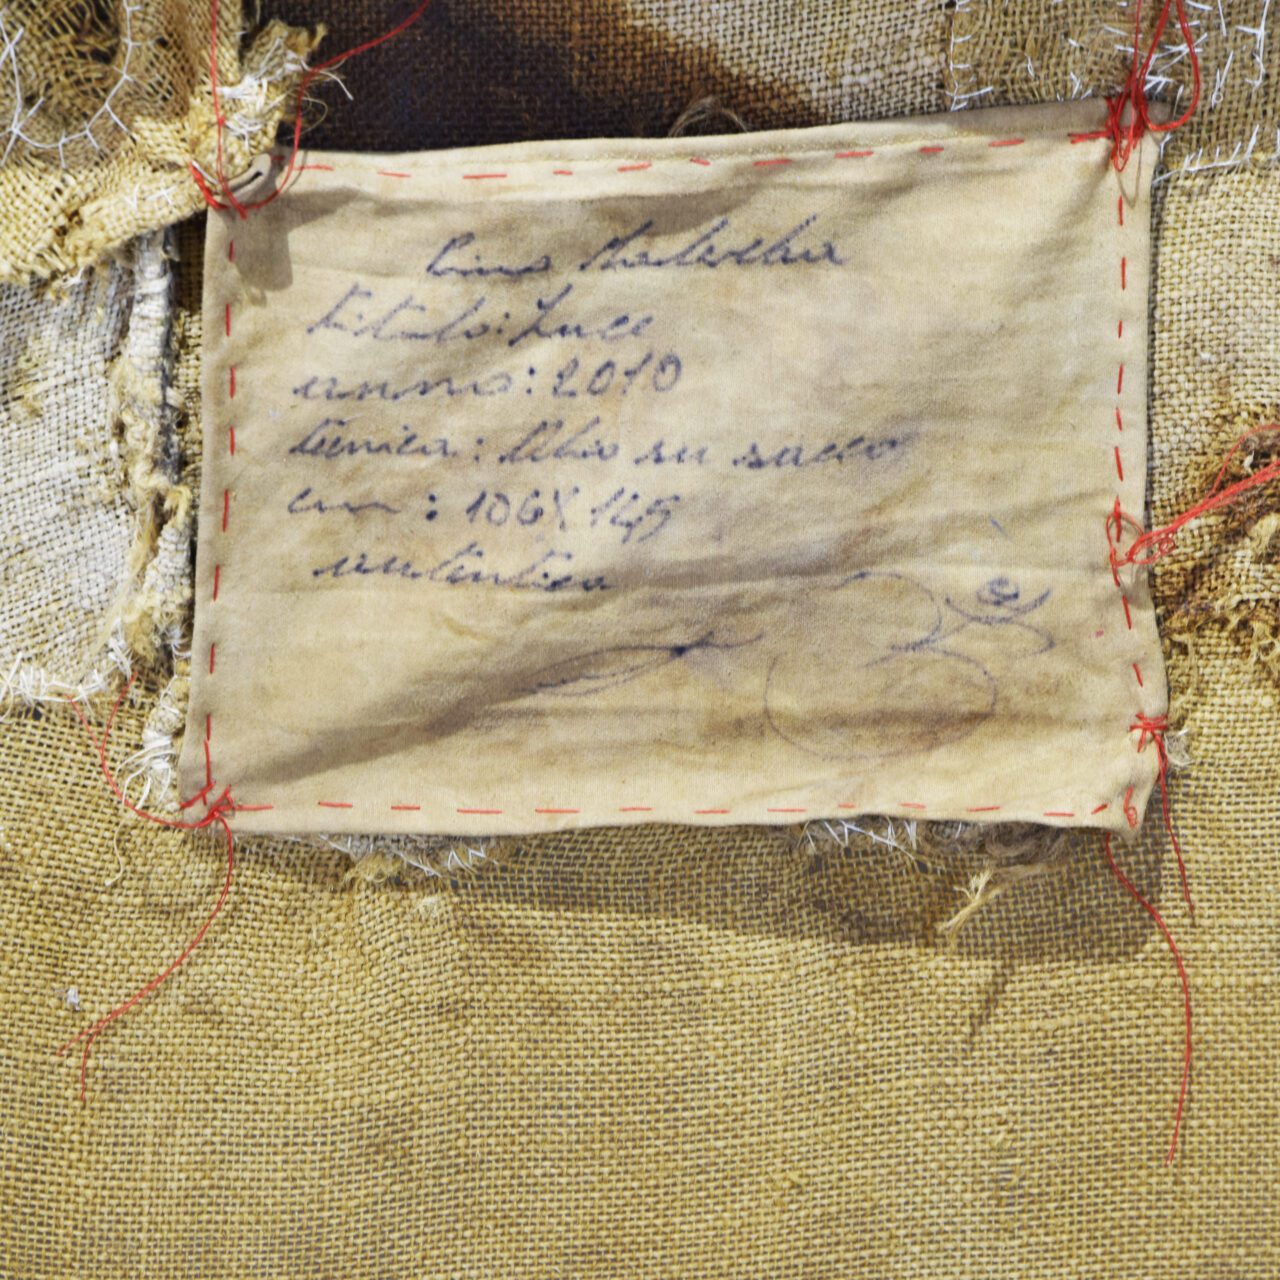 titolo: Luce
anno: 2010
tecnica: Olio su sacco
cm: 106X145
autentica